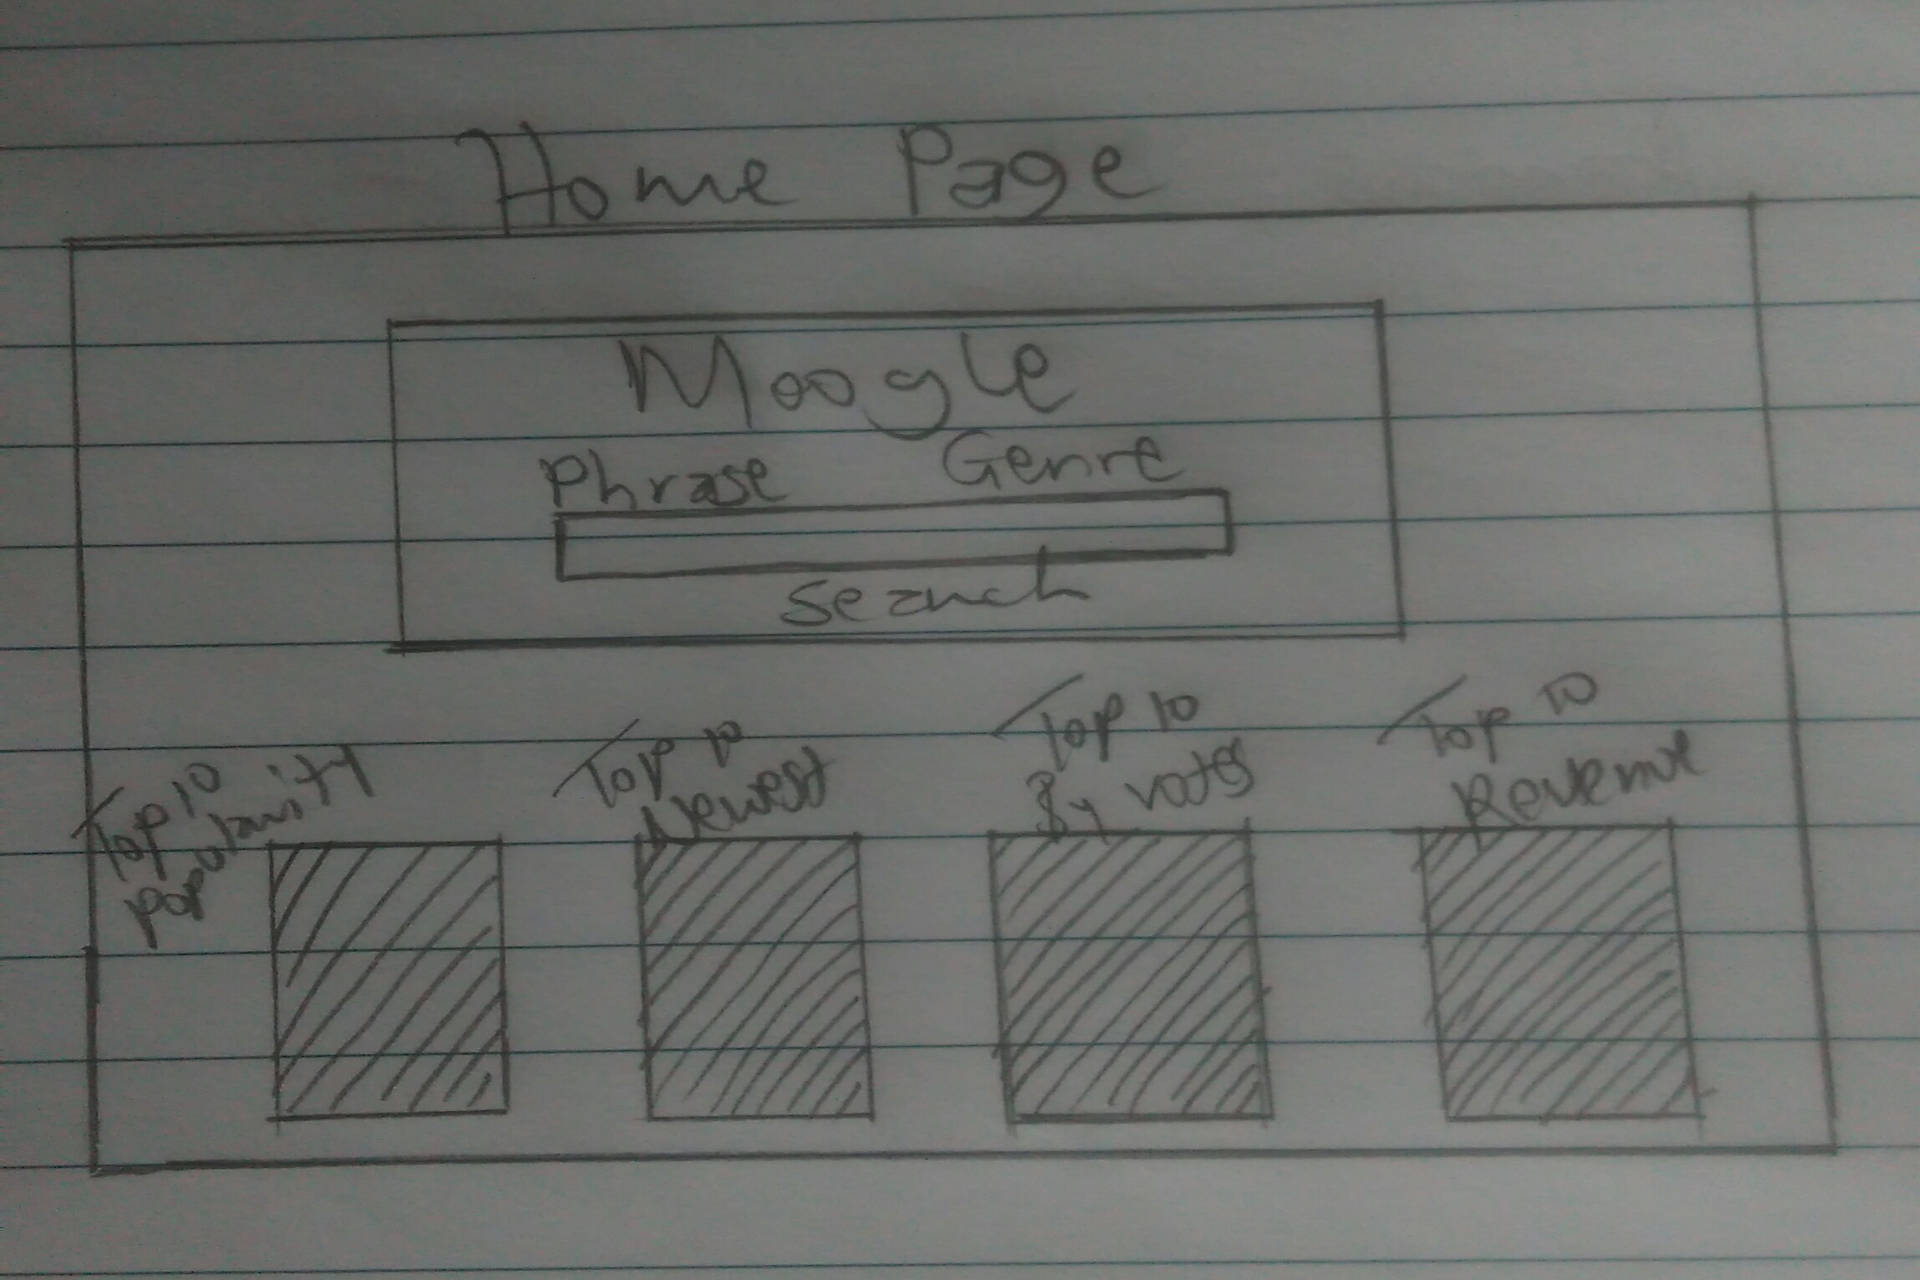 Home Page
Moogle
Phrase Genre
Search
Top 10
Popularity
Top 10
Newest
Top 10
By votes
Top 10
Revenue